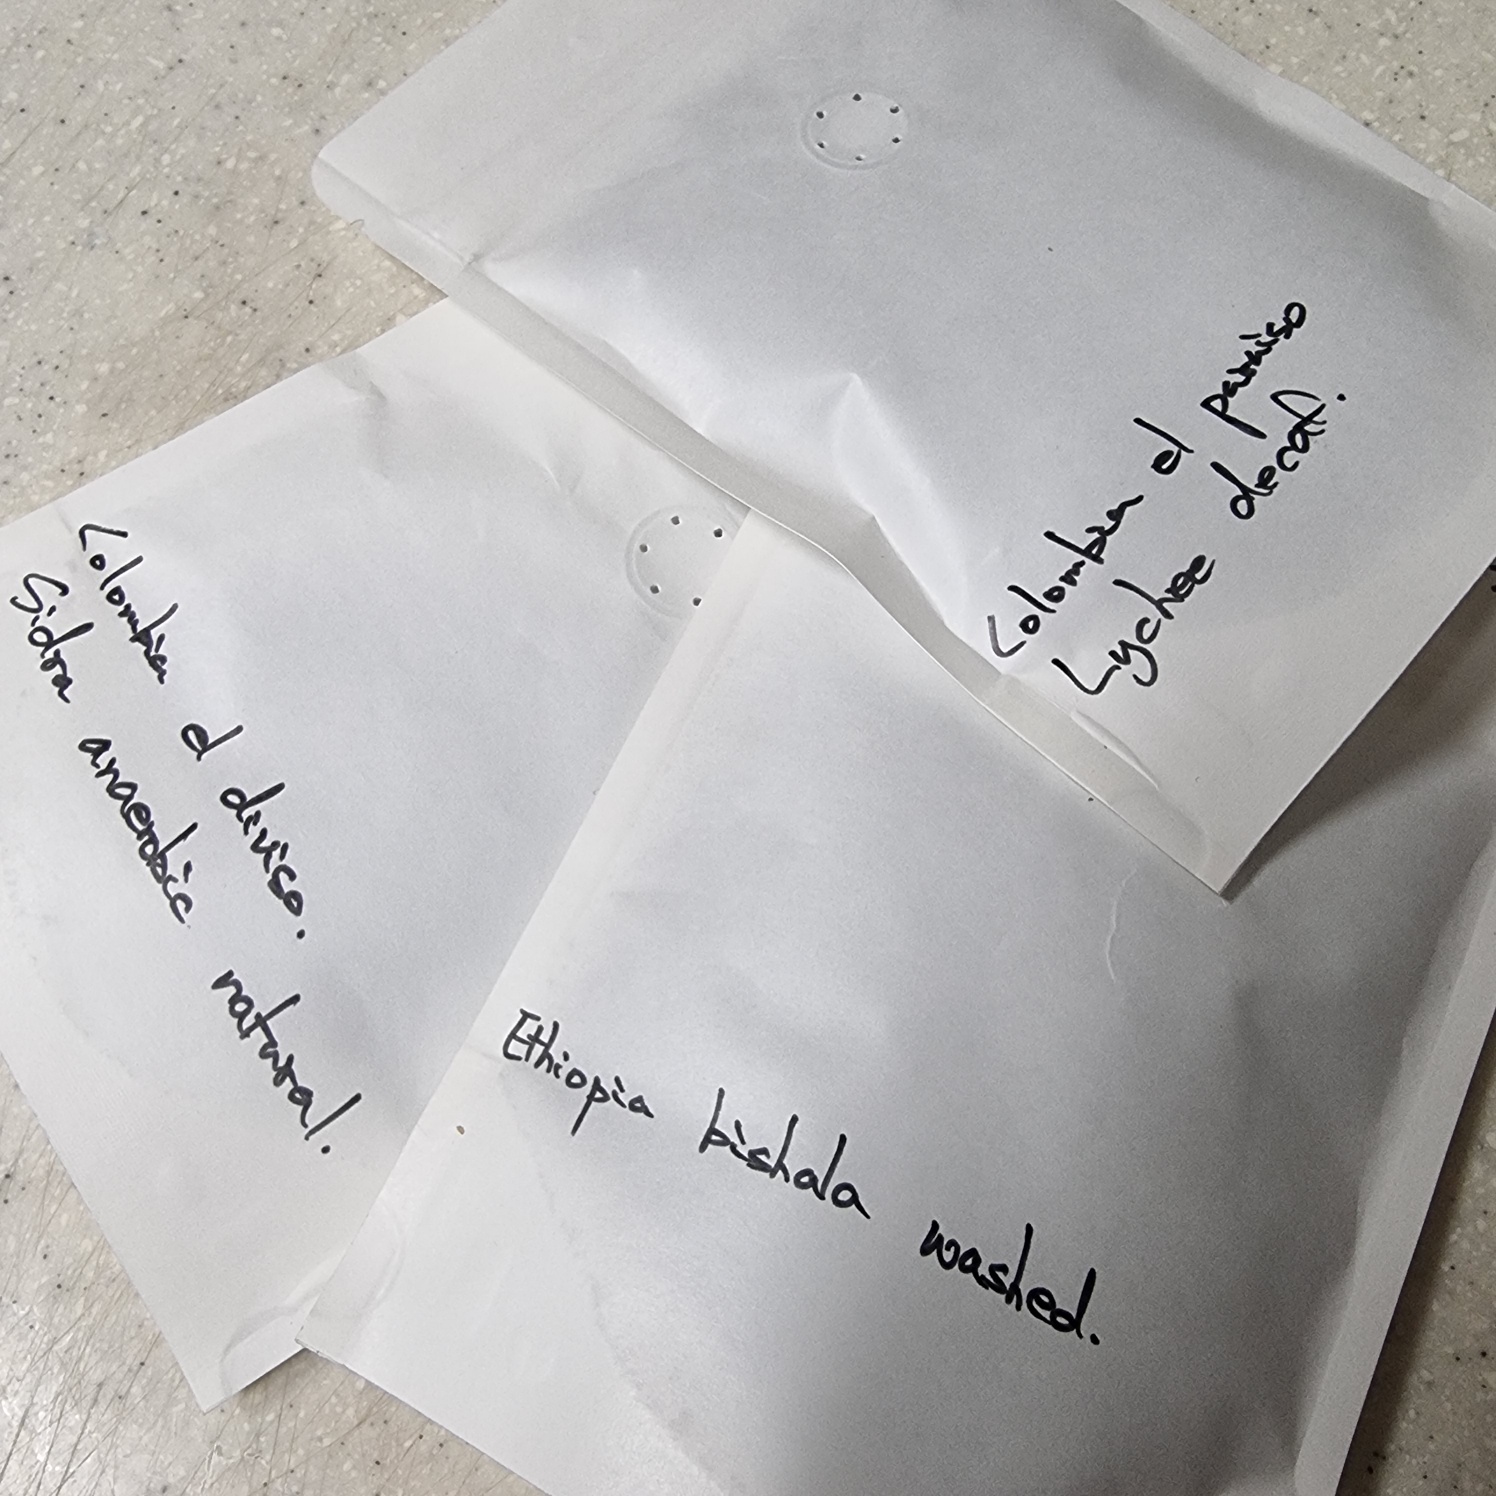 Colombia el paraiso
Lychee decaf.
Colombia el diviso.
Sidra anaerobic natural.
Ethiopia bishala washed.